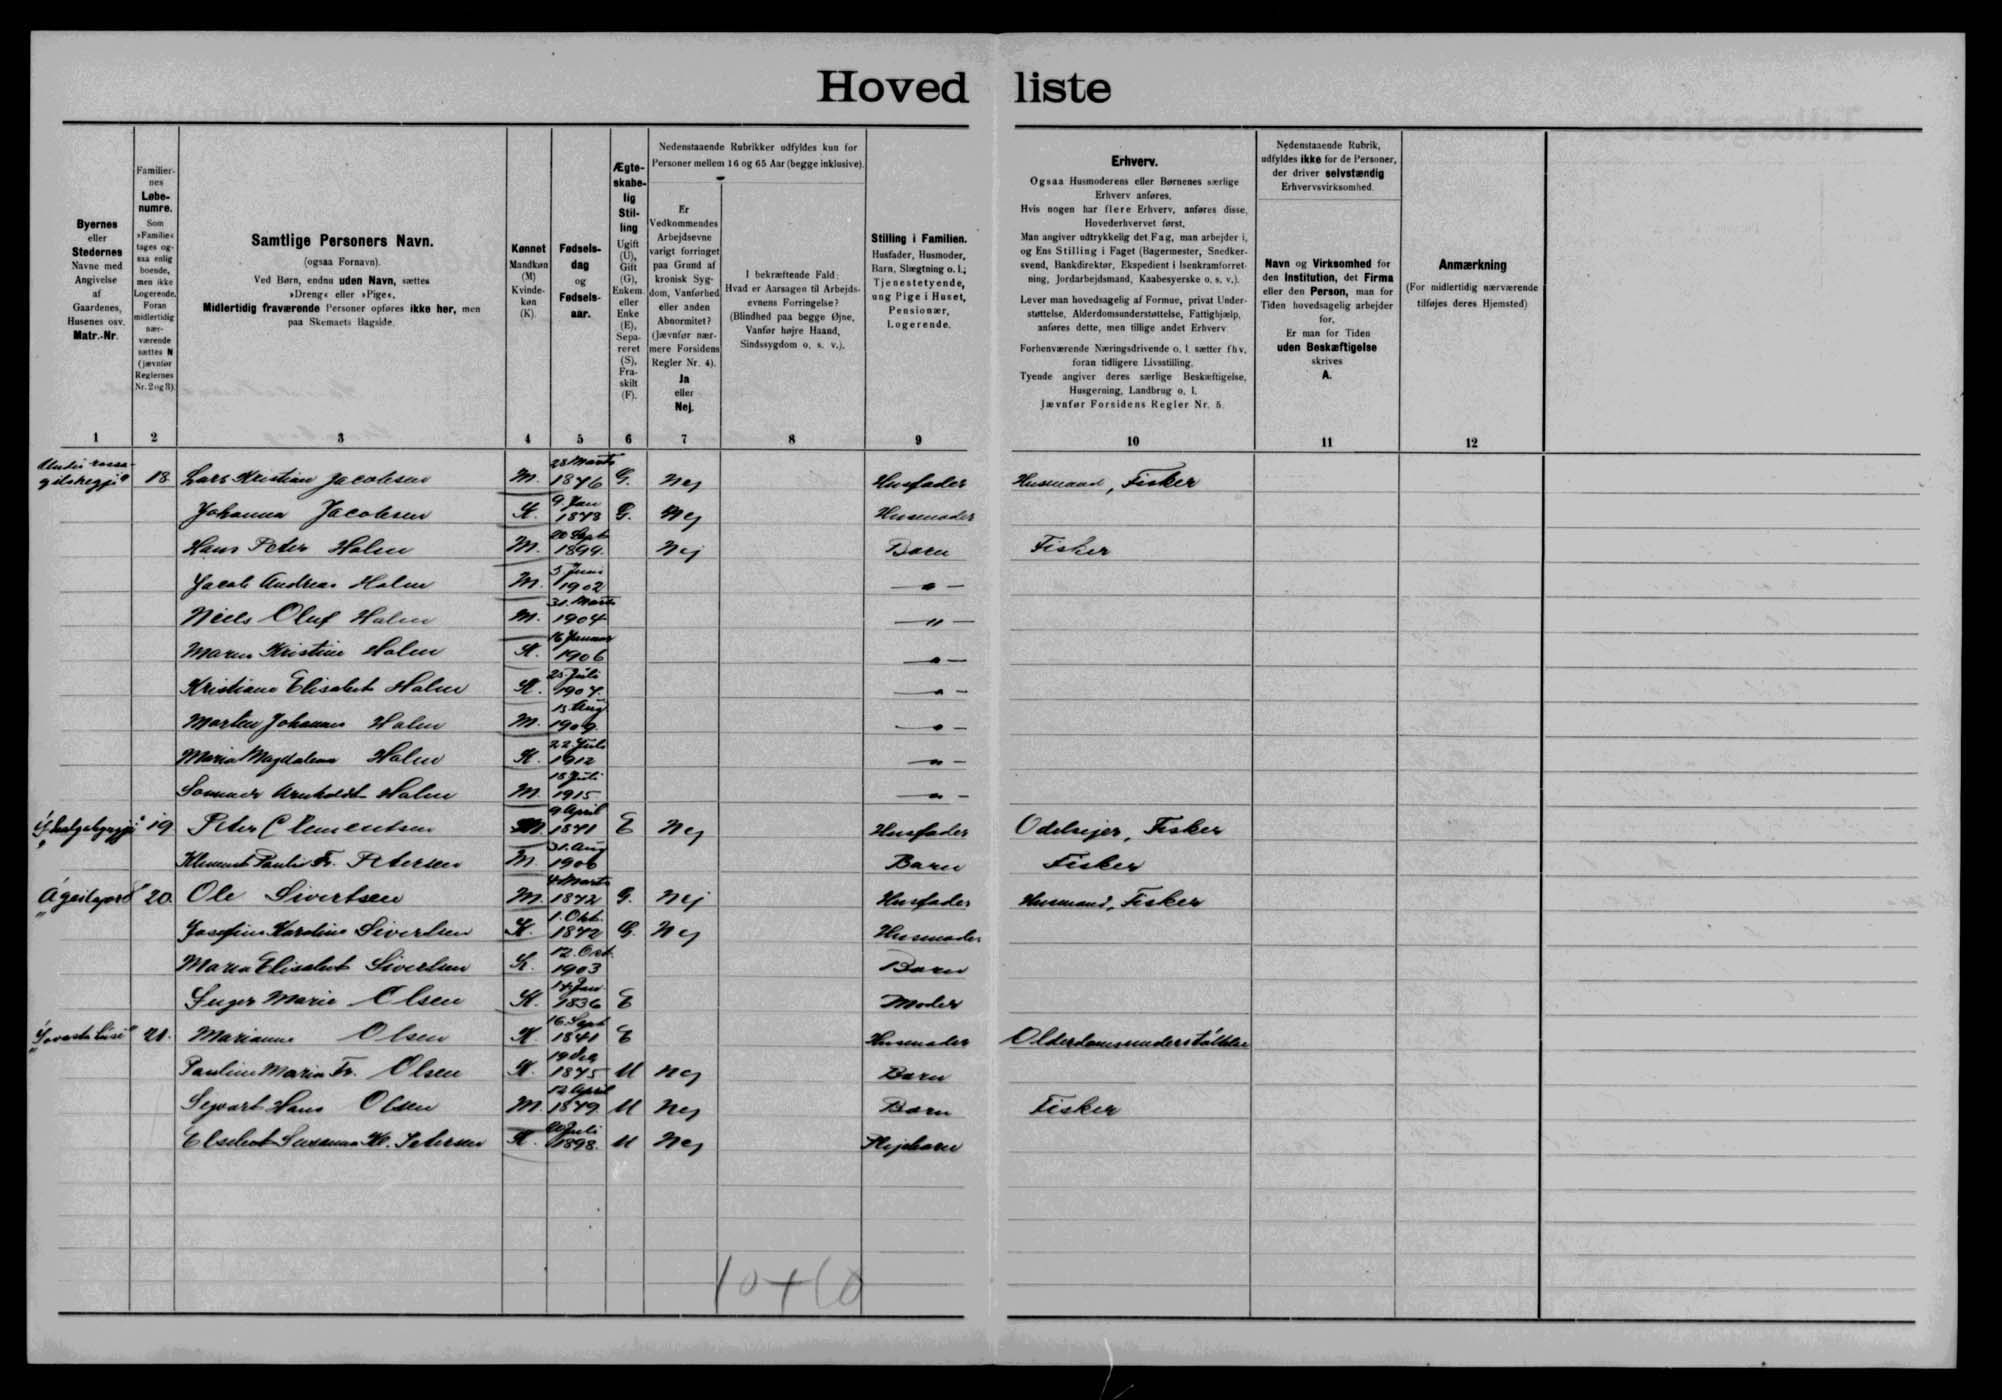 Hoved liste
Byernes
eller
Stedernes
Navne med
Angivelse
af
Gaardenes,
Husenes osv.
Matr.-Nr.
1
Familier-
nes
Løbe-
numre.
Som
»Familie«
tages og-
saa enlig
boende,
men ikke
Logerende.
Foran
midlertidig
nær-
værende
sættes N
(jævnfør
Reglernes
Nr. 2 og 8).
2
Samtlige Personers Navn.
(ogsaa Fornavn).
Ved Børn, endnu uden Navn, sættes
»Dreng« eller »Pige«.
Midlertidig fraværende Personer opføres ikke her, men
paa Skemaets Bagside.
3
Kønnet
Mandkøn
(M)
Kvinde-
køn
(K).
4
Fødsels-
dag
og
Fødsels-
aar.
5
Ægte-
skabe-
lig
Stil-
ling
Ugift
(U),
Gift
(G),
Enkem.
eller
Enke
(E),
Sepa-
reret
(S),
Fra-
skilt
(F).
6
Nedenstaaende Rubrikker udfyldes kun for
Personer mellem 16 og 65 Aar (begge inklusive).
Er
Vedkommendes
Arbejdsevne
varigt forringet
paa Grund af
kronisk Syg-
dom, Vanførhed
eller anden
Abnormitet?
(Jævnfør nær-
mere Forsidens
Regler Nr. 4).
Ja
eller
Nej.
7
I bekræftende Fald:
Hvad er Aarsagen til Arbejds-
evnens Forringelse?
(Blindhed paa begge Øjne,
Vanfør højre Haand,
Sindssygdom o. s. v.).
8
Stilling i Familien.
Husfader, Husmoder,
Barn, Slægtning o. l.;
Tjenestetyende,
ung Pige i Huset,
Pensionær,
Logerende.
9
Erhverv.
Ogsaa Husmoderens eller Børnenes særlige
Erhverv anføres.
Hvis nogen har flere Erhverv, anføres disse,
Hovederhvervet først.
Man angiver udtrykkelig det Fag, man arbejder i,
og Ens Stilling i Faget (Bagermester, Snedker-
svend, Bankdirektør, Ekspedient i Isenkramforret-
ning, Jordarbejdsmand, Kaabesyerske o. s. v.).
Lever man hovedsagelig af Formue, privat Under-
støttelse, Alderdomsunderstøttelse, Fattighjælp,
anføres dette, men tillige andet Erhverv
Forhenværende Næringsdrivende o. l. sætter fhv.
foran tidligere Livsstilling.
Tyende angiver deres særlige Beskæftigelse,
Husgerning, Landbrug o. l.
Jævnfør Forsidens Regler Nr. 5.
10
Nedenstaaende Rubrik,
udfyldes ikke for de Personer,
der driver selvstændig
Erhvervsvirksomhed.
Navn og Virksomhed for
den Institution, det Firma
eller den Person, man for
Tiden hovedsagelig arbejder
for.
Er man for Tiden
uden Beskæftigelse
skrives
A.
11
Anmærkning
(For midlertidig nærværende
tilføjes deres Hjemsted)
12
28 Marts
18. Lars Kristian Jacobsen M. 1876 G. Nej Husfader Husmand, Fisker
9 Jan
Johanna Jacobsen K. 1873 G. Nej Husmoder
20 Sept
Hans Peter Holm M. 1899. Nej Barn Fisker
5 Juni
Jacob Andreas Holm M. 1902 -"-
31. Marts
Niels Oluf Holm M. 1904 -"-
16 Januar
Maren Kristine Holm K. 1906 -"-
25 Juli
Kristiane Elisabet Holm K. 1907. -"-
13. Aug
Morten Johannes Holm M. 1909. -"-
22 Juli
Maria Magdalena Holm K. 1912 -"-
18 Juli
Arnholdt Holm M. 1915 -"-
9 April
19 Peter Clementsen M 1871 E Nej Husfader Odelsejer, Fisker
31. Aug
Klement Paulus Fr. Petersen M. 1906 Barn Fisker
4 Marts
20. Ole Sivertsen M. 1872 G. Nej Husfader Husmand, Fisker
1. Okt.
Josefine Karoline Sivertsen K. 1872 G. Nej Husmoder
12. Okt.
Maria Elisabet Sivertsen K. 1903 Barn
14 Jan
Inger Marie Olsen K. 1836 E Moder
16. Sept
21. Marianne Olsen K. 1841 E Husmoder
Pauline Maria Fr. Olsen K. 1875 U Nej Barn
12 April
Sigvart Hans Olsen M. 1879. U Nej Barn Fisker
20 Juli
Elsebet Susanna Kl. Petersen K. 1898. U Nej Plejebarn
10+10